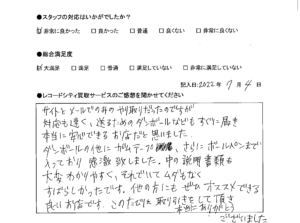 ●スタッフの対応はいかがでしたか?
☑非常に良かった □良かった □普通 □良くない □非常に良くない
●総合満足度
☑大満足 □満足 □普通 □満足していない □非常に満足していない
記入日:2022年 7月 4日
●レコードシティ買取サービスのご感想を聞かせてください
サイトとメールでのみのやり取りだったのですが
対応も速く、送るためのダンボールなどもすぐに届き
本当に安心できるお店だと思いました。
ダンボールの他にガムテープ さらにボールペンまで
入っており 感激致しました。中の説明書類も
大変わかりやすく、それでいてムダもなく
すばらしかったです。他の方にもぜひオススメできる
良いお店です。このたびは取り引きをして頂き
本当にありがとう
ございました